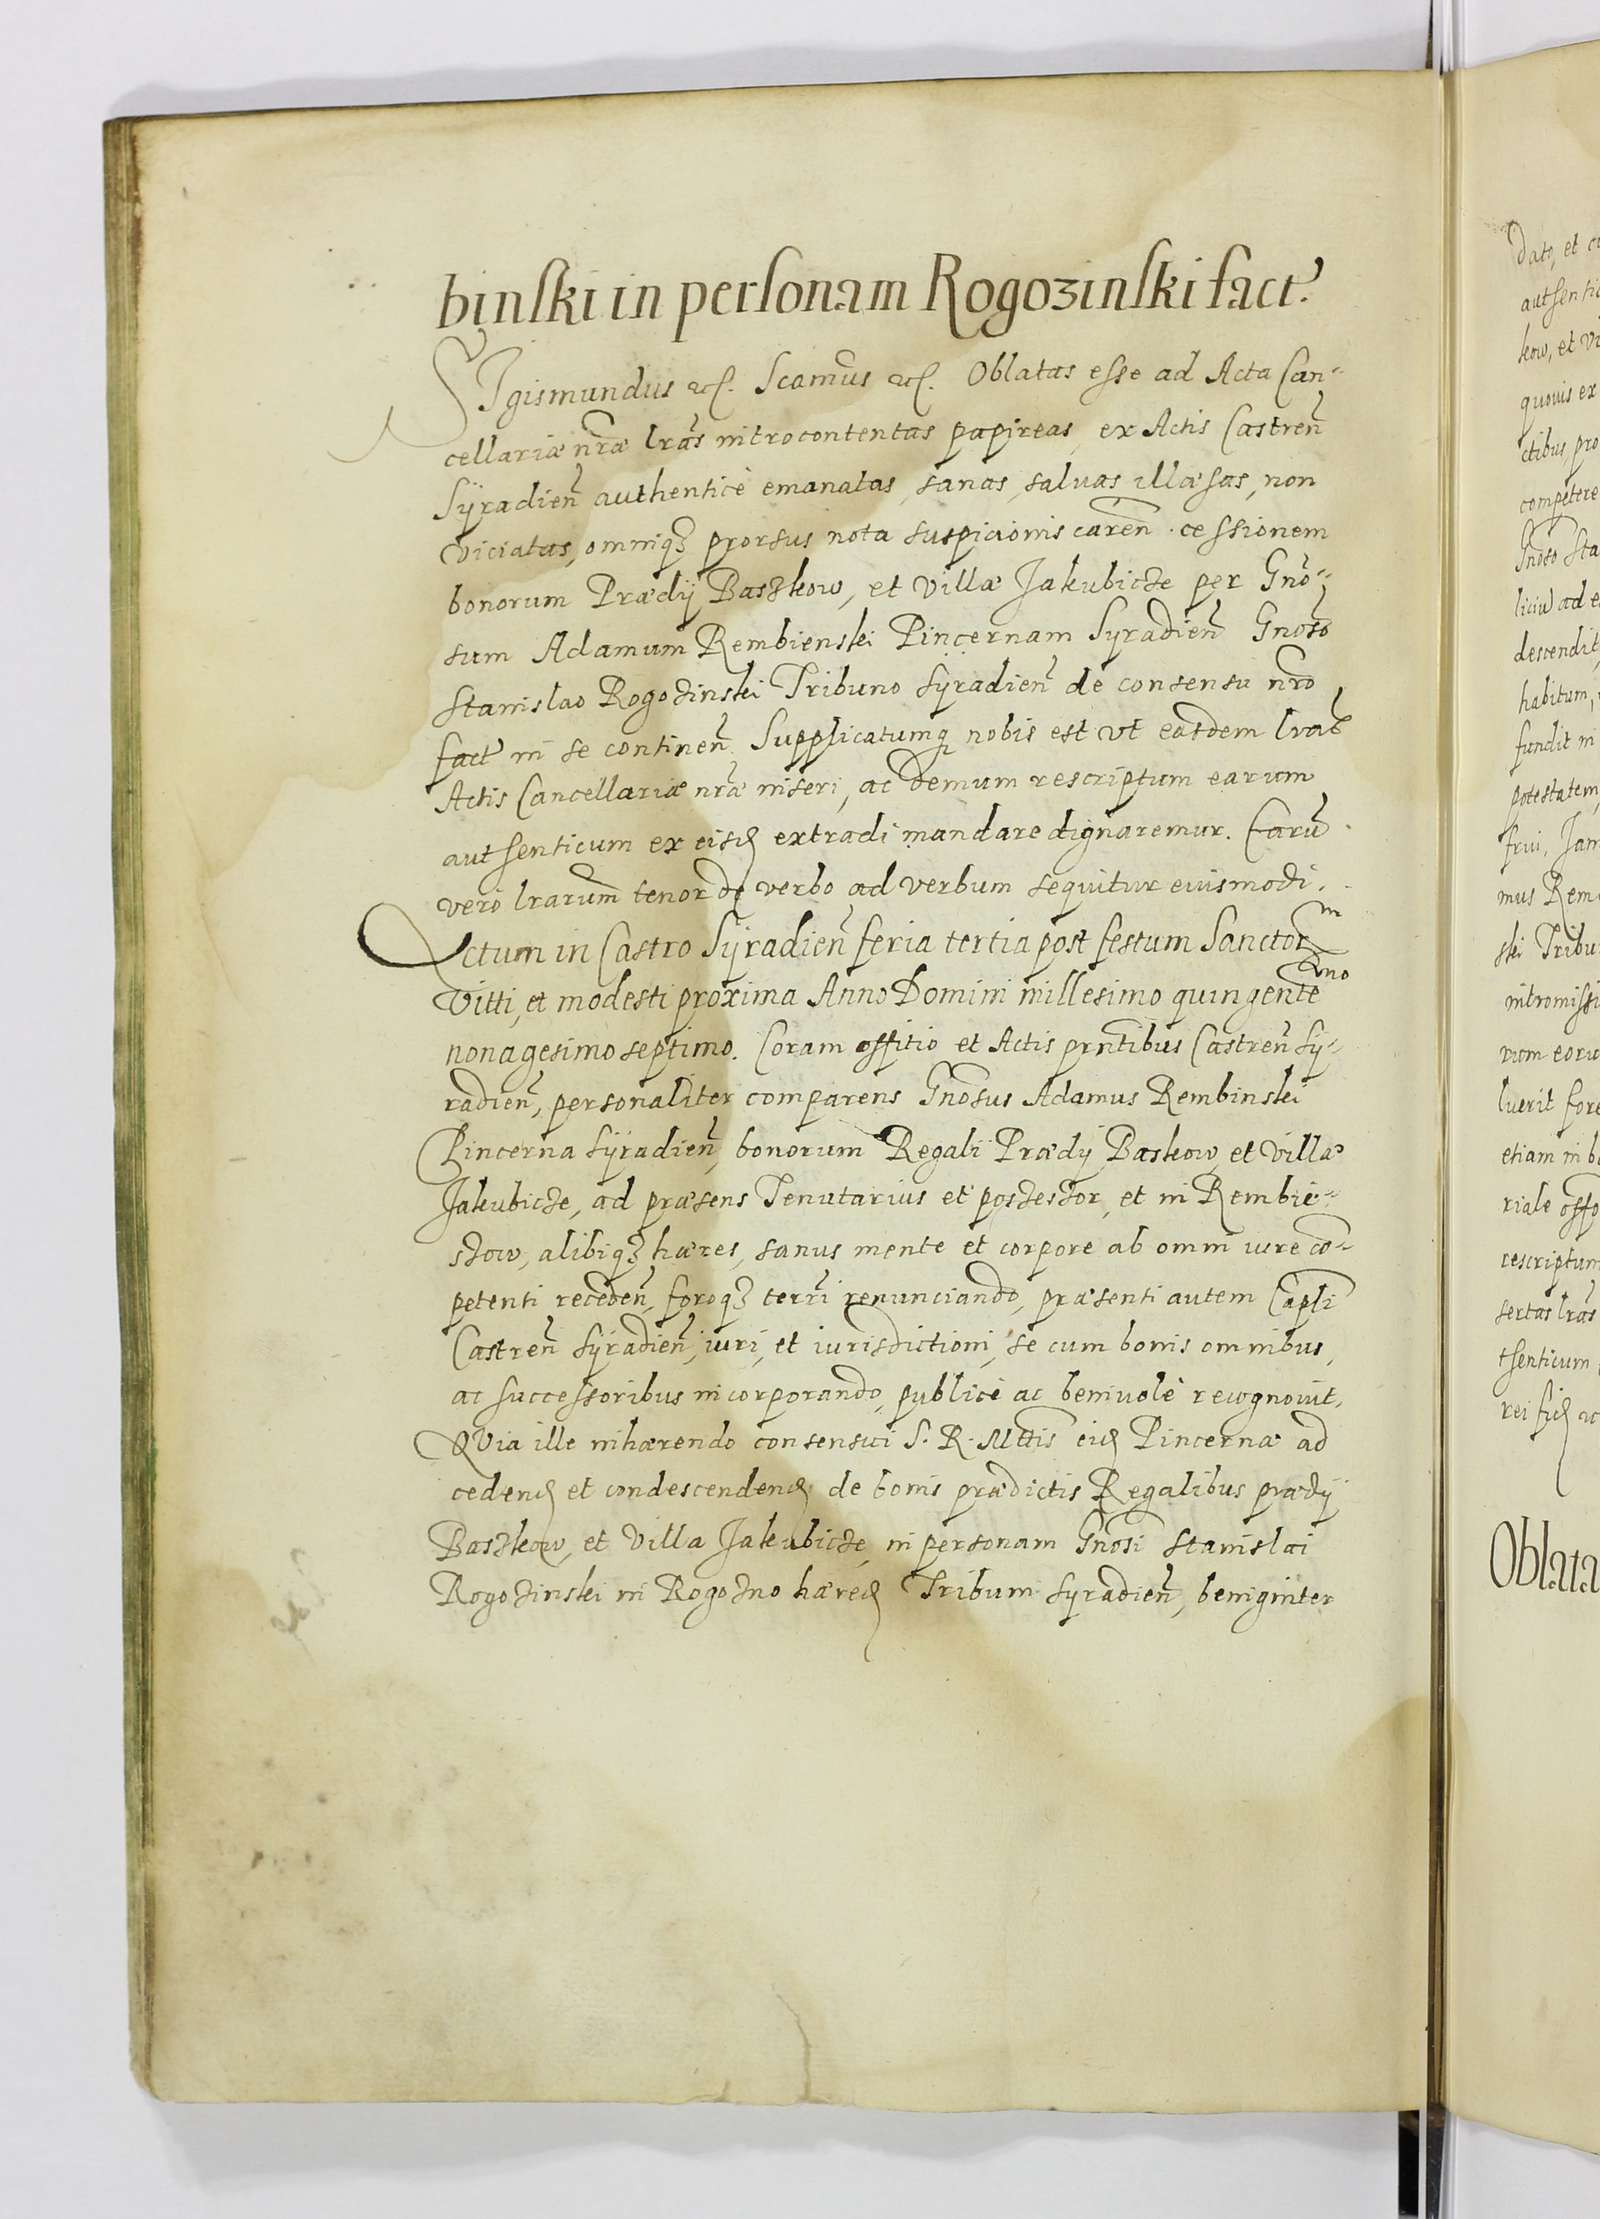 binski in personam Rogozinski fact.
SIgismundus etc. Scamus etc. Oblatas esse ad Acta Can-
cellariæ nræ lras introcontentas papireas, ex Actis Castren
Syradien authenticè emanatas, sanas, saluas illæsas, non
viciatas, omniq3 prorsus nota suspicionis caren. cessionem
bonorum Prædij Baszkow, et villæ Jakubicze per Gno-
sum Adamum Rembienski Pincernam Syradien Gnoso
Stanislao Rogozinski Tribuno Syradien de consensu nro
fact in se continen. Supplicatumq nobis est vt easdem lras
Actis Cancellariæ nræ inseri, ac demum rescriptum earum
authenticum ex eisd extradi mandare dignaremur. Earu
vero lrarum tenor de verbo ad verbum sequitur eiusmodi.
Actum in Castro Syradien feria tertia post festum Sanctorm
Vitti, et modesti proxima Anno Domini millesimo quingentemo
nonagesimo septimo. Coram offitio et Actis prntibus Castren Sy-
radien, personaliter comparens Gnosus Adamus Rembinski
Pincerna Syradien, bonorum Regali Prædij Baskow, et villæ
Jakubicze, ad præsens Tenutarius et possessor, et in Rembie-
szow, alibiq3 hæres, sanus mente et corpore ab omni iure co-
petenti receden, foroq3 terri renunciando, præsenti autem Capli
Castren Syradien, iuri, et iurisdictioni, se cum bonis omnibus,
ac successoribus incorporando, publicè ac beniuolè recognouit,
QVia ille inhærendo consensui S. R. Mttis eid Pincernæ ad
cedend et condescendend de bonis prædictis Regalibus prædij
Baszkow, et villa Jakubicze, in personam Gnosi Stanislai
Rogozinski in Rogozno hæred Tribuni Syradien, benigniter
dato, et
authentic
kow, et vi
quouis ex
ctibus, pro
competere
Gnoso Sta
liciu) ad
descendit,
habitum,
fundit in
potestatem,
frui, Jam
mus Rem
ski Tribu
intromissi
rum eoru
luerit fore
etiam in b
riale offo
rescriptum
sertas lras
thenticum
rei fid
Oblata